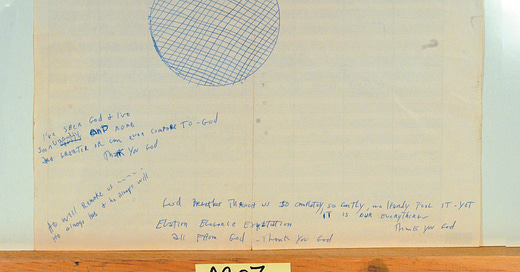 I've seen God & I've
seen AND NONE
ARE GREATER OR CAN EVEN COMPARE TO - GOD
Thank You God
He will Remake us
He always has & he always will
God Breathes Through us so completely, so Gently, we hardly Feel it - YET
IT IS OUR EVERYTHING
Thank You God
Elation Elegance Exaltation
All From God - Thank You God